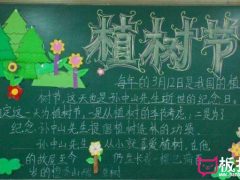 植树节
每年的3月12日是我国的植
树节，这天也是孙中山先生逝世的纪念日，
定这一天为植树节，一是从植树的季节考虑，二是为了
纪念孙中山先生提倡植造林的功勋
孙中山先生从小就喜爱植树，在他
的故居至今
板报